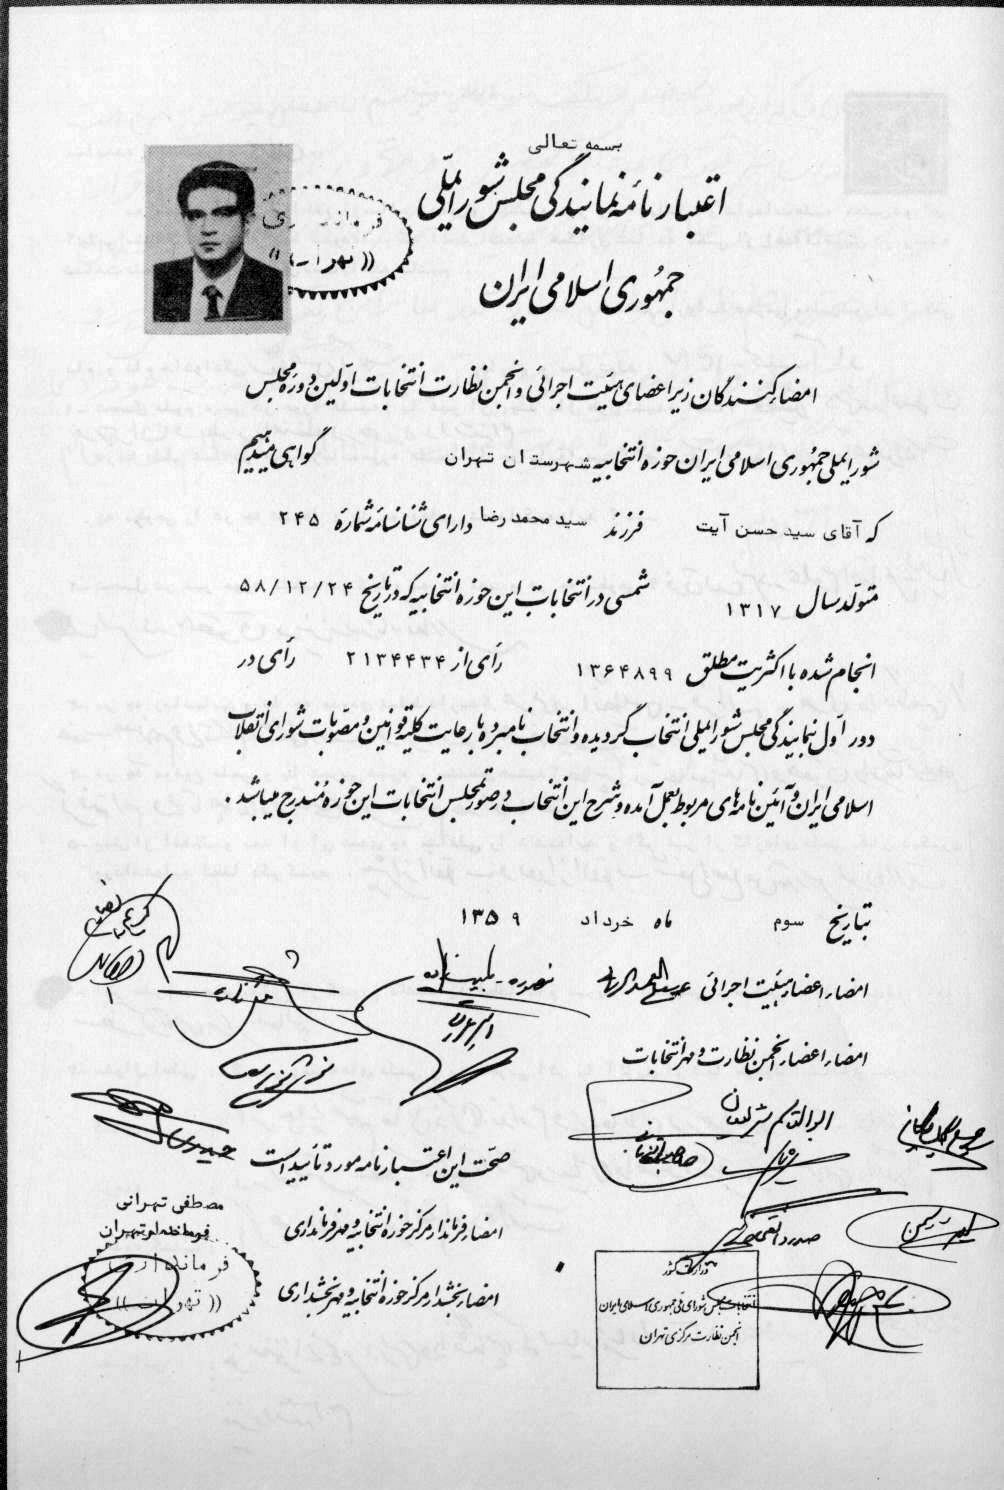 بسمه تعالی
اعتبارنامهٔ نمایندگی مجلس شورایملّی
جمهُوری اسلامی ایران
فرمانداری
((تهران))
امضاءکنندگان زیر اعضای هیئت اجرائی و انجمن نظارت انتخابات اوّلین دورهٔ مجلس
شورایملی جمهُوری اسلامی ایران حوزه انتخابیه شهرستان تهران گواهی میدهیم
که آقای سید حسن آیت فرزند سید محمد رضا دارای شناسنامه شمارهٔ ۲۴۵
متولّد سال ۱۳۱۷ شمسی در انتخابات این حوزه انتخابیه که در تاریخ ۵۸/۱۲/۲۴
انجام شده با اکثریت مطلق ۱۳۶۴۸۹۹ رأی از ۲۱۳۴۴۳۴ رأی در
دور اوّل بنمایندگی مجلس شورایملی انتخاب گردیده و انتخاب نامبرده با رعایت کلیه قوانین و مصوّبات شورای انقلاب
اسلامی ایران و آئین نامه‌های مربوط بعمل آمده و شرح این انتخاب در صورتمجلس انتخابات این حوزه مندرج میباشد .
بتاریخ سوم ماه خرداد ۱۳۵۹
امضاء اعضاء هیئت اجرائی
امضاء اعضاء انجمن نظارت و مهر انتخابات
ابوالقاسم
حیدری
صحّت این اعتبارنامه مورد تأیید است
مصطفی تهرانی
فرماندار تهران
امضاء فرماندار مرکز حوزه انتخابیه و مهر فرمانداری
فرمانداری
((تهران))
امضاء بخشدار مرکز حوزه انتخابیه و مهر بخشداری
وزارت کشور
انتخابات مجلس شورای ملی جمهوری اسلامی ایران
انجمن نظارت مرکزی تهران